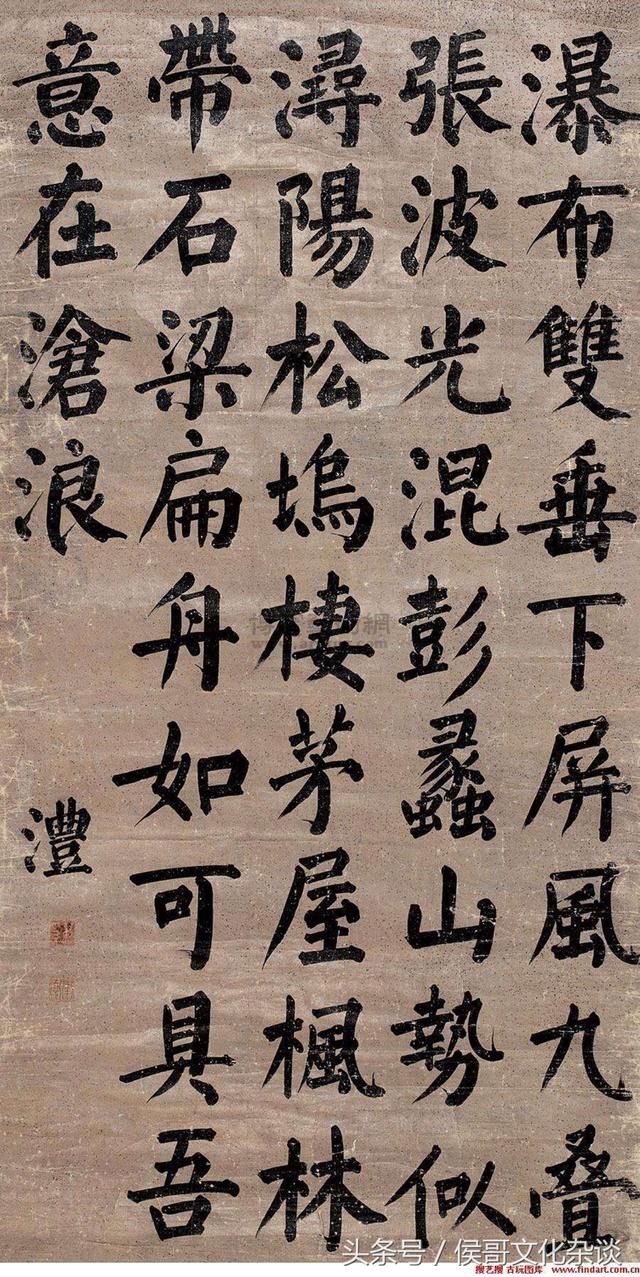 瀑布雙垂下屏風九疊
張波光混彭蠡山勢似
潯陽松塢棲茅屋楓林
帶石梁扁舟如可具吾
意在滄浪
澧
头条号/侯哥文化杂谈
搜艺搜 古玩图库 www.findart.com.cn